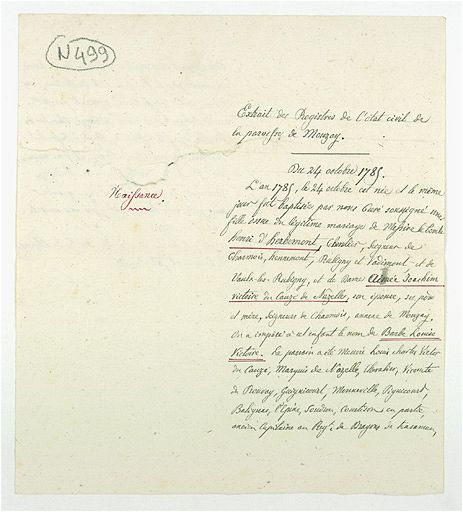 N 499
Extrait des Registres de l'état civil de
la paroisse de Mouzay.
Du 24 octobre 1785.
Naissance.
L'an 1785, le 24 octobre est née et le même
jour fut baptisée par nous Curé soussigné une
fille issue du légitime mariage de Messire le Comte
henri d'herbemont, Chevalier, Seigneur de
Charmois, hennemont, Rubigny et Vadimont et de
Vaulx-les-Rubigny, et de Dame Aimée Joachim
victoire du Cauzé de Nazelle, son épouse, ses père
et mère, Seigneurs de Charmois, annexe de Mouzay.
On a imposé à cet enfant le nom de Barbe Louise
Victoire. Le parrain a été Messire Louis charles Victor
du Cauzé, Marquis de Nazelle, Chevalier, Vicomte
de Prouvay, Guignicourt, Menneville,
en partie,
ancien Capitaine au Régt. de Dragons de